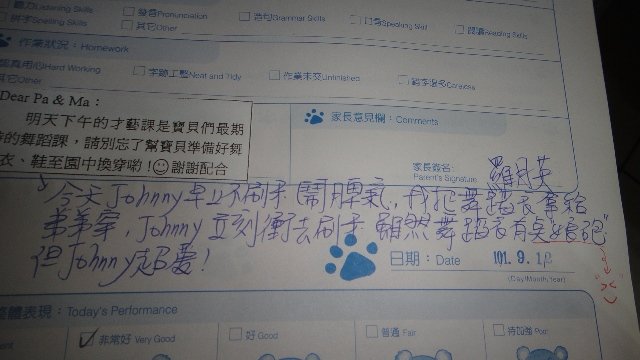 聽力Listening Skills □ 發音Pronunciation □ 造句Grammar Skills □ 口語Speaking Skill □ 閱讀Reading Skills
拼字Spelling Skills □ 其它Other
作業狀況：Homework
認真用心Hard Working □ 字跡工整Neat and Tidy □ 作業未交Unfinished □ 錯字過多Careless
其它Other
Dear Pa & Ma：
明天下午的才藝課是寶貝們最期
待的舞蹈課，請別忘了幫寶貝準備好舞
衣、鞋至園中換穿喲！☺謝謝配合
家長意見欄：Comments
家長簽名：
Parent's Signature
今天Johnny早上不刷牙鬧脾氣，我把舞蹈衣拿給
弟弟穿，Johnny立刻衝去刷牙 雖然舞蹈衣有點娘砲
但Johnny超愛！
日期：Date 101.9.12
(Day/Month/Year)
整體表現：Today's Performance
✓ 非常好 Very Good □ 好 Good □ 普通 Fair □ 待加強 Poor